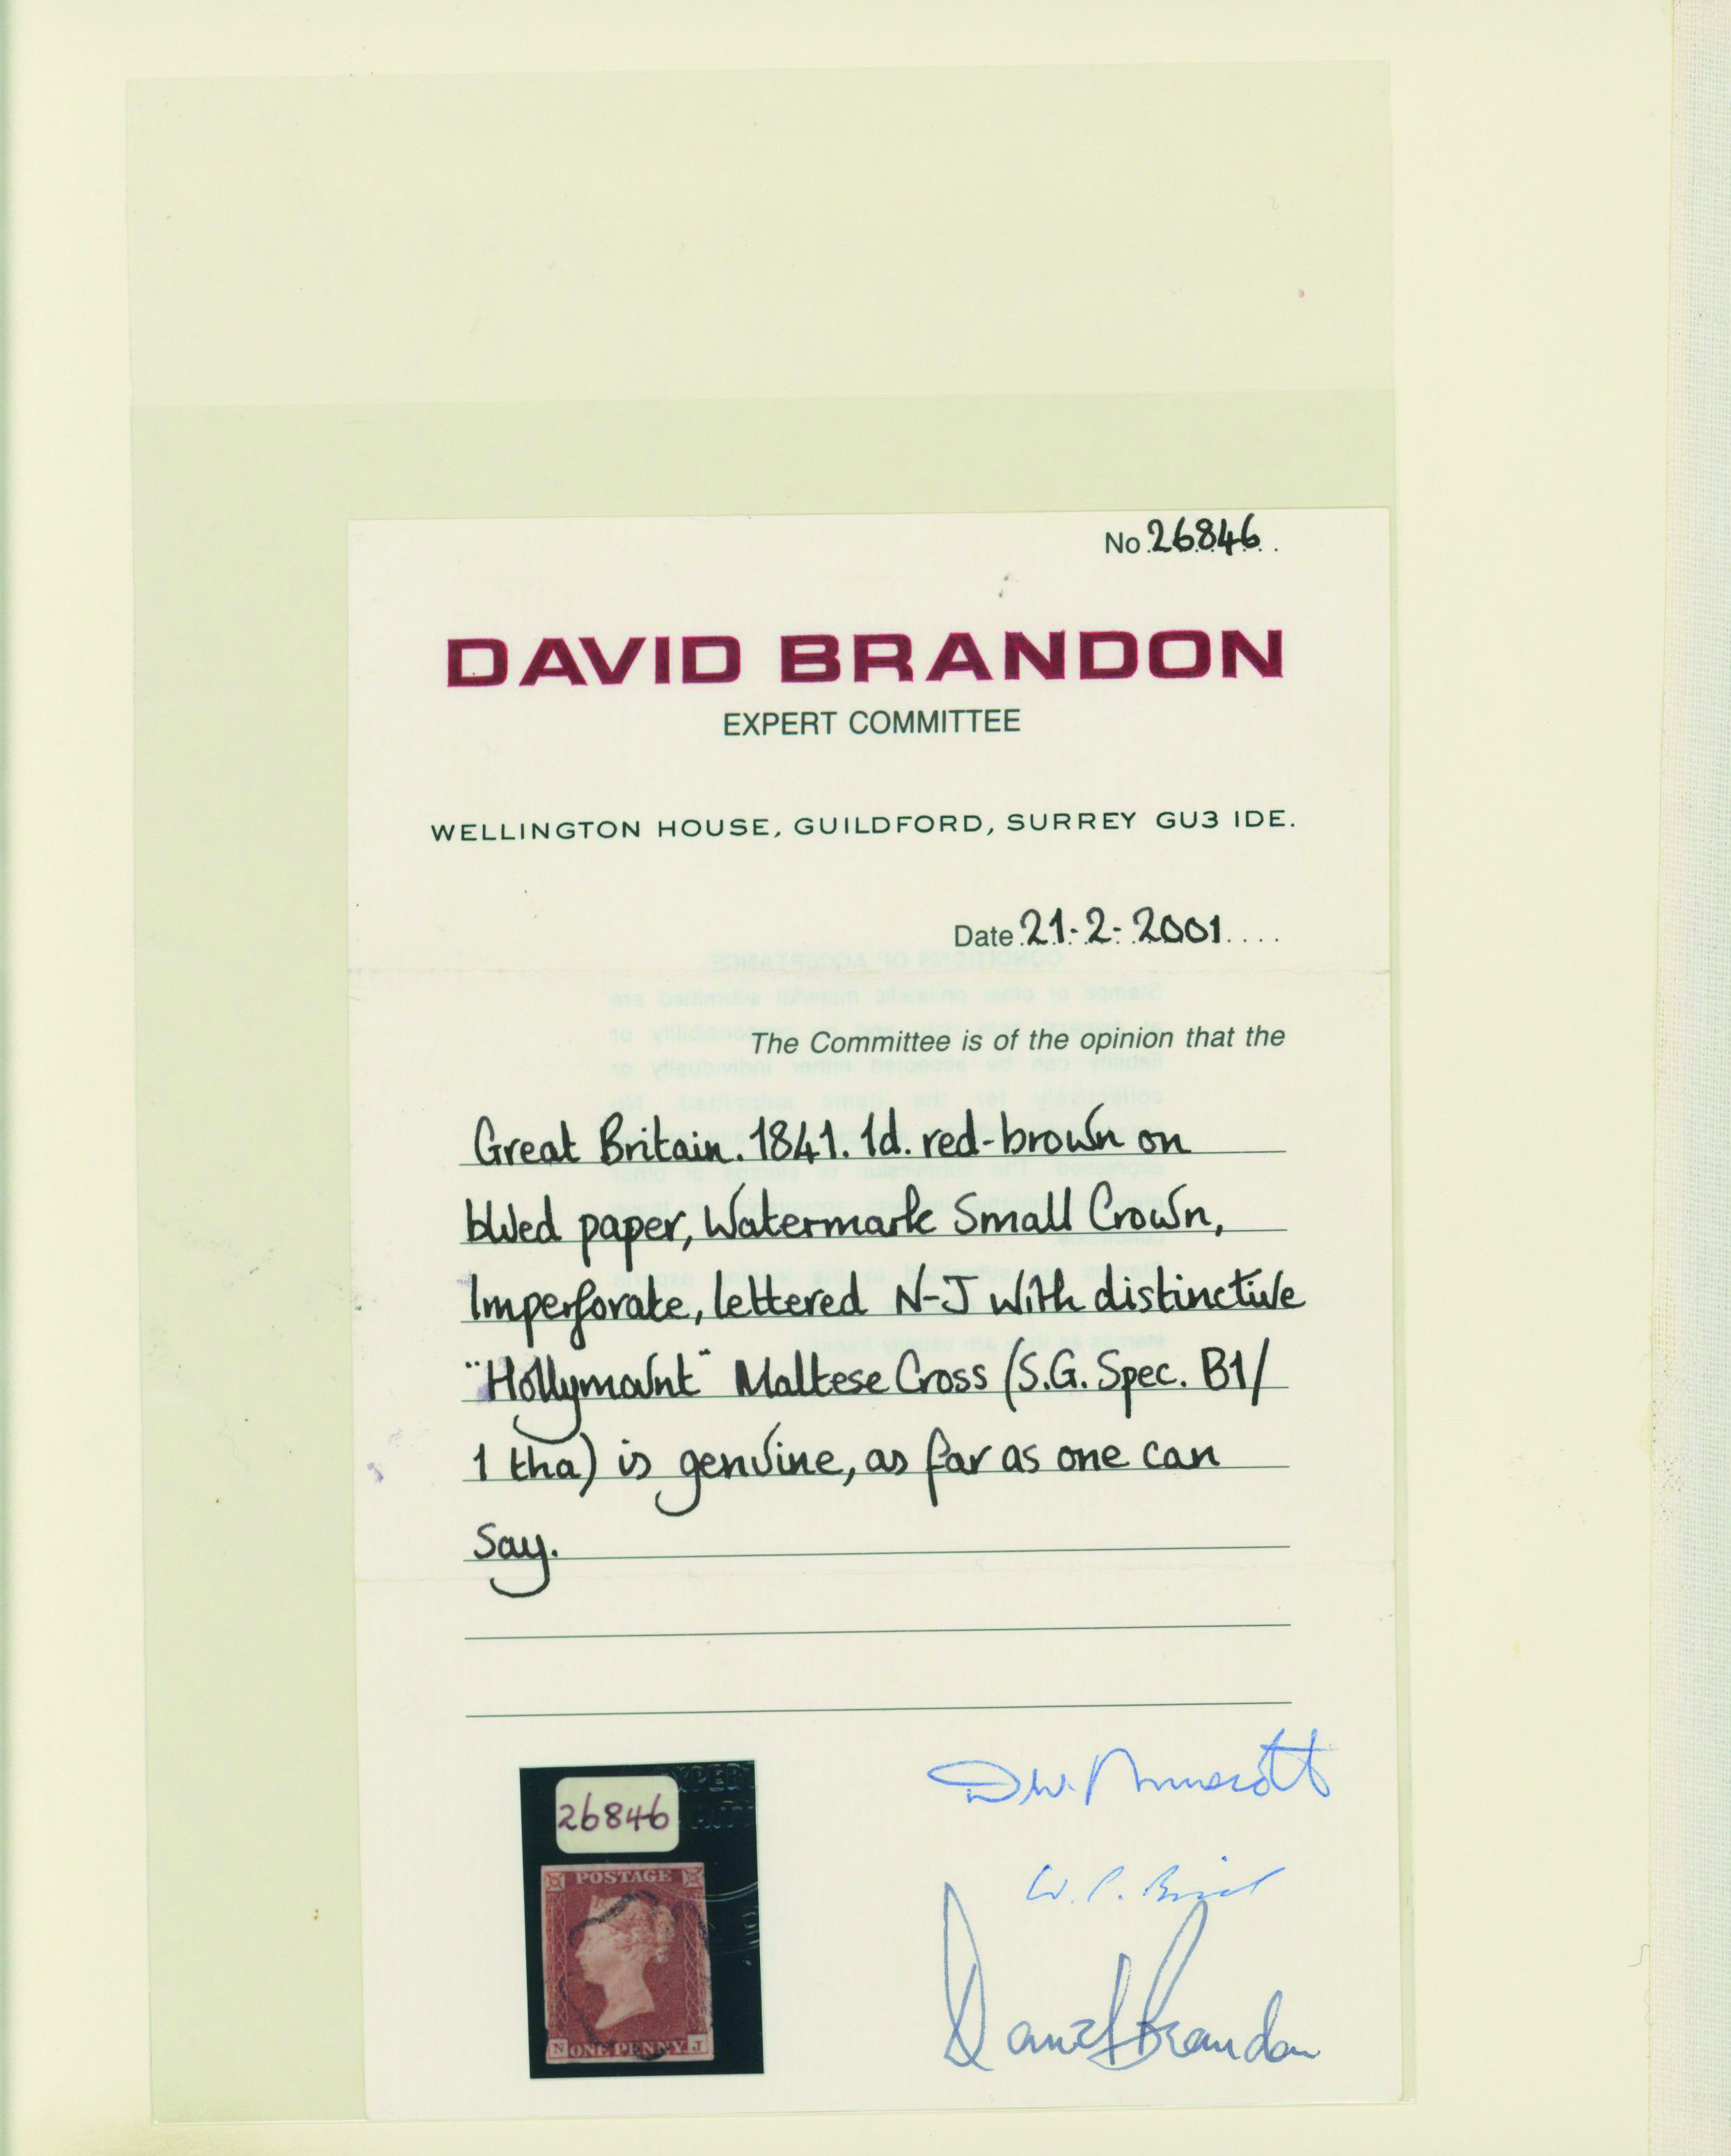 No 26846
DAVID BRANDON
EXPERT COMMITTEE
WELLINGTON HOUSE, GUILDFORD, SURREY GU3 IDE.
Date 21-2-2001
The Committee is of the opinion that the
Great Britain. 1841. 1d. red-brown on
blued paper, Watermark Small Crown,
Imperforate, lettered N-J with distinctive
"Hollymount" Maltese Cross (S.G. Spec. B1/
1 tha) is genuine, as far as one can
say.
26846
POSTAGE
N ONE PENNY J
W. P.
David Brandon